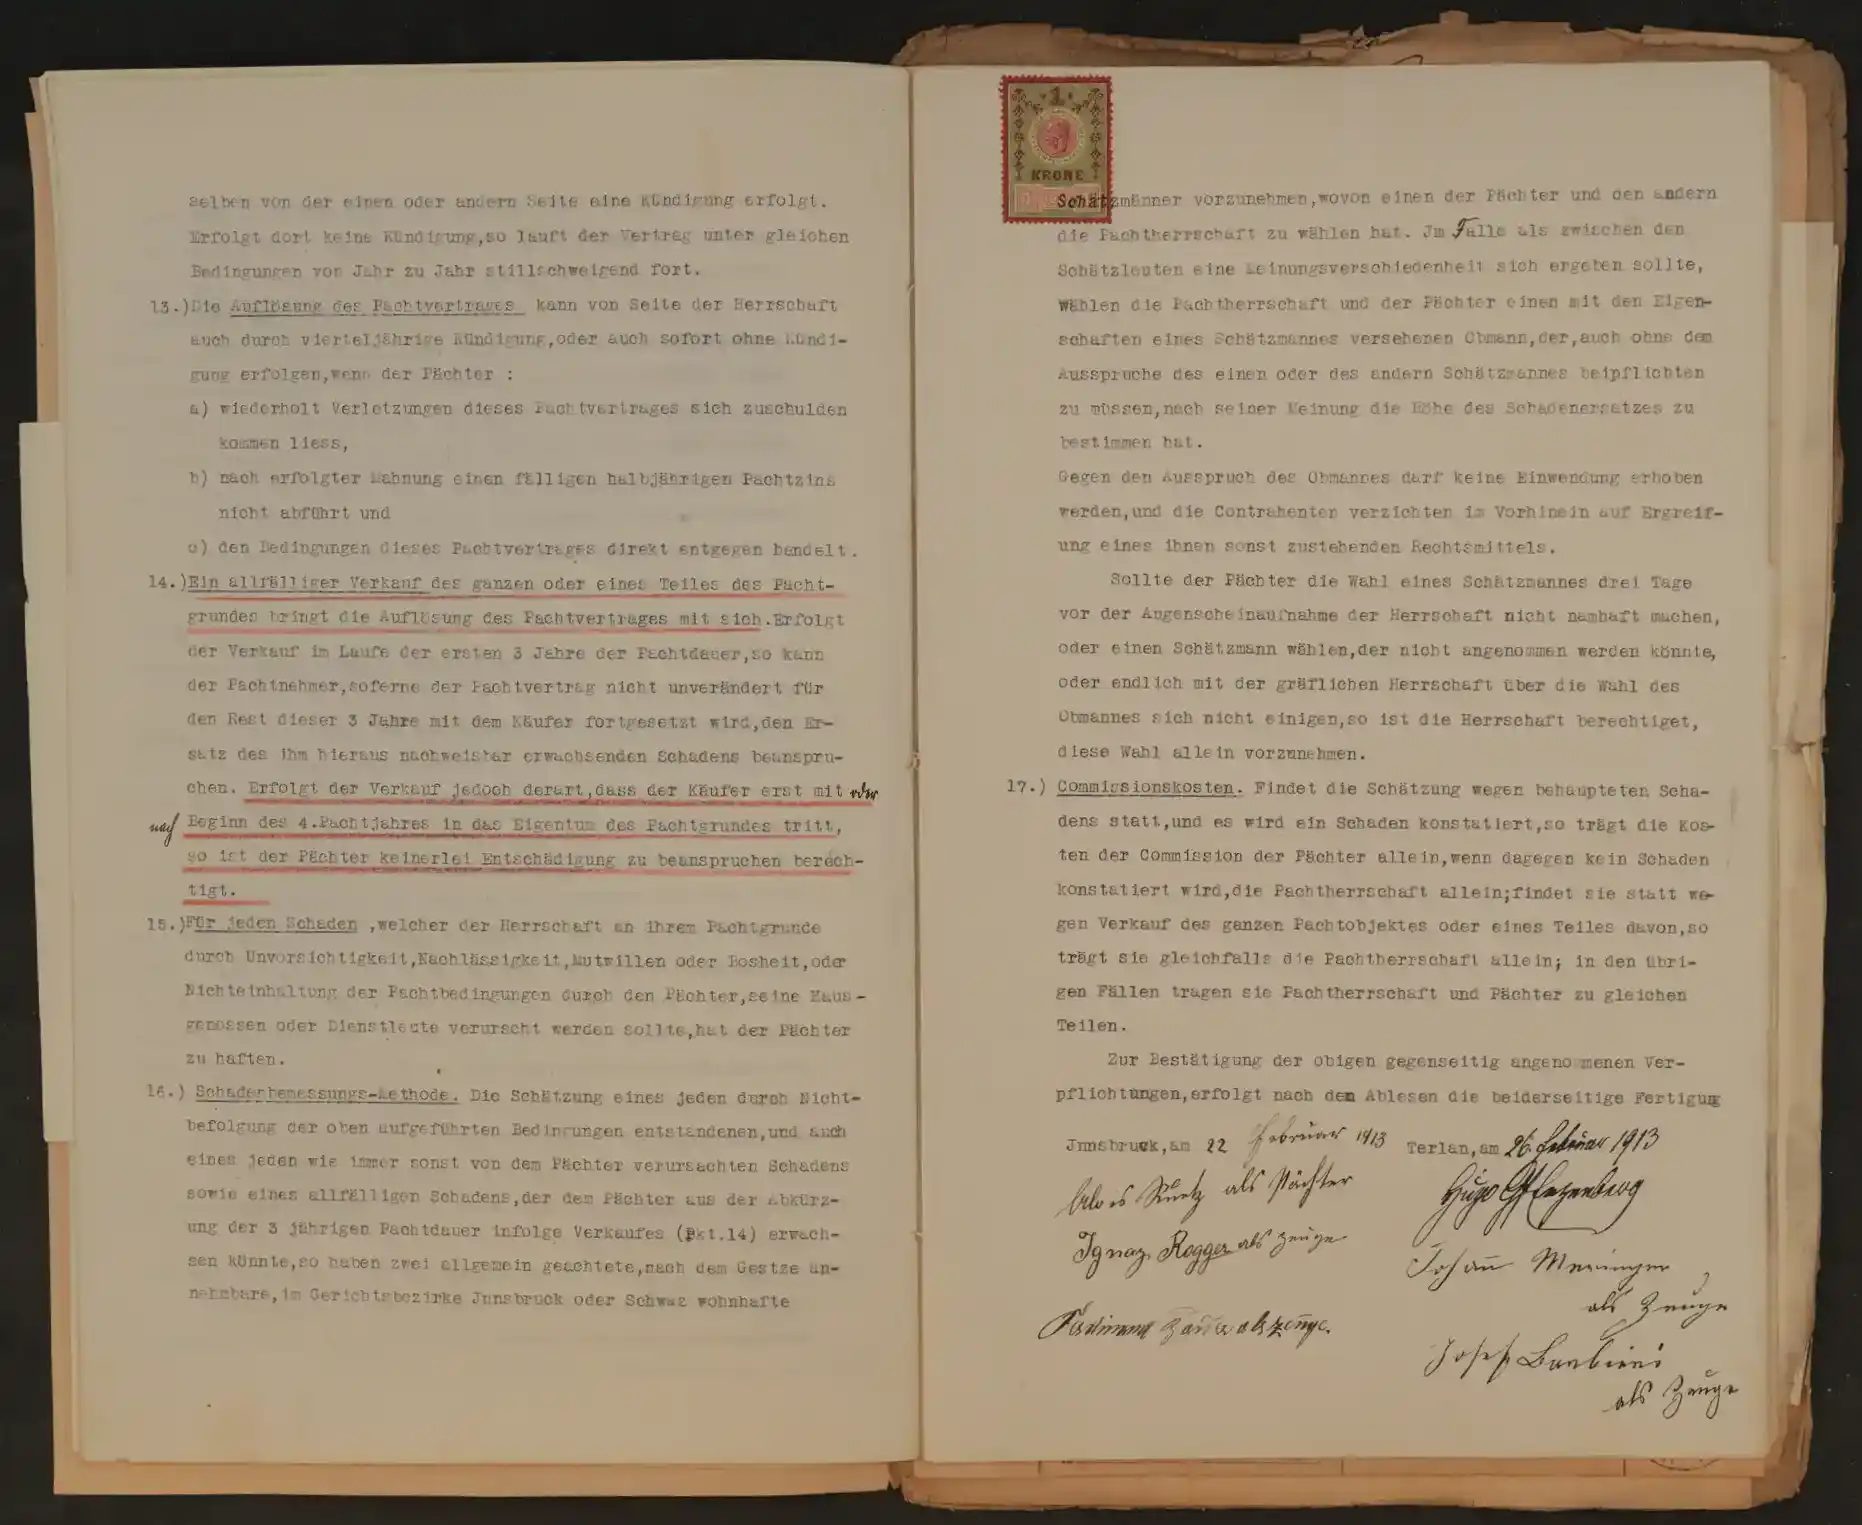 selben von der einen oder andern Seite eine Kündigung erfolgt.
Erfolgt dort keine Kündigung,so lauft der Vertrag unter gleichen
Bedingungen von Jahr zu Jahr stillschweigend fort.
13.)Die Auflösung des Pachtvertrages kann von Seite der Herrschaft
auch durch vierteljährige Kündigung,oder auch sofort ohne Kündi-
gung erfolgen,wenn der Pächter :
a) wiederholt Verletzungen dieses Pachtvertrages sich zuschulden
kommen liess,
b) nach erfolgter Mahnung einen fälligen halbjährigen Pachtzins
nicht abführt und
c) den Bedingungen dieses Pachtvertrages direkt entgegen handelt.
14.)Ein allfälliger Verkauf des ganzen oder eines Teiles des Pacht-
grundes bringt die Auflösung des Pachtvertrages mit sich.Erfolgt
der Verkauf im Laufe der ersten 3 Jahre der Pachtdauer,so kann
der Pachtnehmer,soferne der Pachtvertrag nicht unverändert für
den Rest dieser 3 Jahre mit dem Käufer fortgesetzt wird,den Er-
satz des ihm hieraus nachweisbar erwachsenden Schadens beanspru-
chen. Erfolgt der Verkauf jedoch derart,dass der Käufer erst mit oder
nach Beginn des 4.Pachtjahres in das Eigentum des Pachtgrundes tritt,
so ist der Pächter keinerlei Entschädigung zu beanspruchen berech-
tigt.
15.)Für jeden Schaden ,welcher der Herrschaft an ihrem Pachtgrunde
durch Unvorsichtigkeit,Nachlässigkeit,Mutwillen oder Bosheit,oder
Nichteinhaltung der Pachtbedingungen durch den Pächter,seine Haus-
genossen oder Dienstleute verurscht werden sollte,hat der Pächter
zu haften.
16.) Schadenbemessungs-Methode. Die Schätzung eines jeden durch Nicht-
befolgung der oben aufgeführten Bedingungen entstandenen,und auch
eines jeden wie immer sonst von dem Pächter verursachten Schadens
sowie eines allfälligen Schadens,der dem Pächter aus der Abkürz-
ung der 3 jährigen Pachtdauer infolge Verkaufes (Pkt.14) erwach-
sen könnte,so haben zwei allgemein geachtete,nach dem Gestze an-
nehmbare,im Gerichtsbezirke Jnnsbruck oder Schwaz wohnhafte
1
KRONE
Schätzmänner vorzunehmen,wovon einen der Pächter und den andern
die Pachtherrschaft zu wählen hat. Jm Falle als zwischen den
Schätzleuten eine Meinungsverschiedenheit sich ergeben sollte,
wählen die Pachtherrschaft und der Pächter einen mit den Eigen-
schaften eines Schätzmannes versehenen Obmann,der,auch ohne dem
Ausspruche des einen oder des andern Schätzmannes beipflichten
zu müssen,nach seiner Meinung die Höhe des Schadenersatzes zu
bestimmen hat.
Gegen den Ausspruch des Obmannes darf keine Einwendung erhoben
werden,und die Contrahenten verzichten im Vorhinein auf Ergreif-
ung eines ihnen sonst zustehenden Rechtsmittels.
Sollte der Pächter die Wahl eines Schätzmannes drei Tage
vor der Augenscheinaufnahme der Herrschaft nicht namhaft machen,
oder einen Schätzmann wählen,der nicht angenommen werden könnte,
oder endlich mit der gräflichen Herrschaft über die Wahl des
Obmannes sich nicht einigen,so ist die Herrschaft berechtiget,
diese Wahl allein vorzunehmen.
17.) Commissionskosten. Findet die Schätzung wegen behaupteten Scha-
dens statt,und es wird ein Schaden konstatiert,so trägt die Kos-
ten der Commission der Pächter allein,wenn dagegen kein Schaden
konstatiert wird,die Pachtherrschaft allein;findet sie statt we-
gen Verkauf des ganzen Pachtobjektes oder eines Teiles davon,so
trägt sie gleichfalls die Pachtherrschaft allein; in den übri-
gen Fällen tragen sie Pachtherrschaft und Pächter zu gleichen
Teilen.
Zur Bestätigung der obigen gegenseitig angenommenen Ver-
pflichtungen,erfolgt nach dem Ablesen die beiderseitige Fertigung
Jnnsbruck,am 22 Februar 1913 Terlan,am 26. Februar 1913
als Pächter
Hugo Gf Enzenberg
Ignaz Rogger als Zeuge
Johann
als Zeuge
Ferdinand als Zeuge.
Josef
als Zeuge